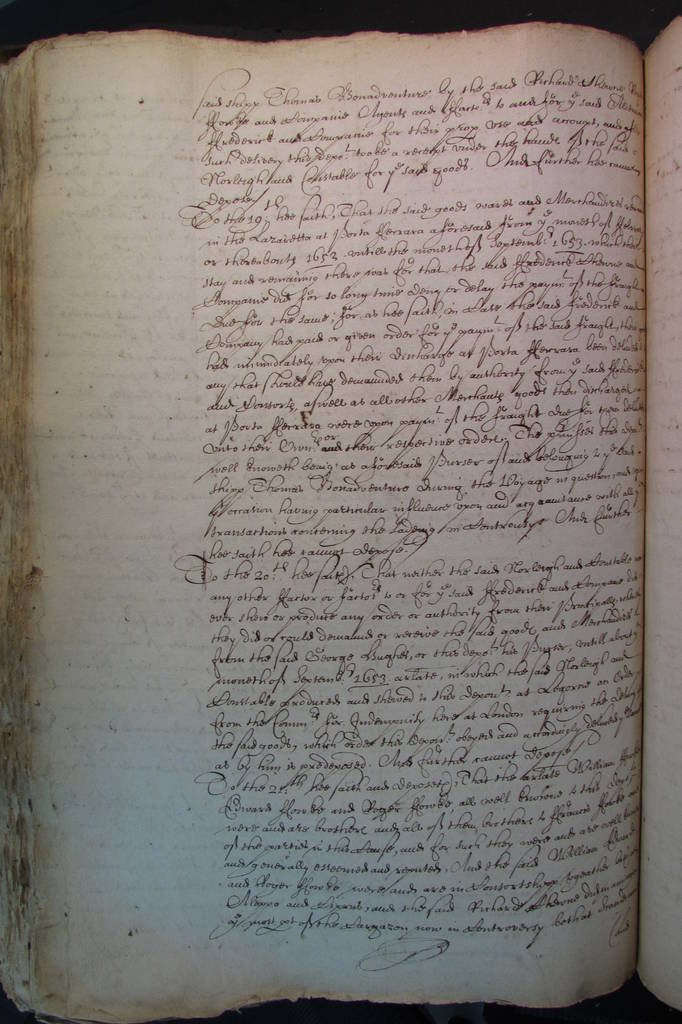 said shipp Thomas Bonadventure by the said Richard Thewne
Hooke and Companie Agents and Facto:rs to and for ye said
Frederick and Companie for their prop use and accompt, and
such delivery this depot. tooke a receipt under the hands of the said
Norleigh and Constable for ye said goods. And further hee cannot
depose./
To the 19:th hee saith, That the said goods wares and Merchandizes
in the Lazaretta at Porta Ferrara aforesaid from ye moneth of
or thereabouts 1652. untill the moneth of Septemb:r 1653. which their
stay and remaining there was for that the said Frederick Thewne and
Companie did for so long time deny or delay the paym:t of the fraight
due for the same; for, as hee saith, in Case the said Frederick and
Company had paid or given order for ye paym:t of the said fraight, they
had immediately upon their discharge at Porta Ferrara been delivered to
any that should have demaunded them by authority from ye said Frederick
and Consorts, aswell as all other Merchants goods then discharged
at Porta Ferrara were upon paym:t of the fraight due for them delivered
unto their Own:rs or their respective orders. The p:rmisses this depo:t
well knoweth being as aforesaid Purser of and belonging to ye said
shipp Thomas Bonadventure during the Voyage in question, and
occasion having particular influence upon and acquaintance with all ye
transactions concerning the Lading in Controversye And further
hee saith hee cannot depose./
To the 20:th hee saith, That neither the said Norleigh and Constable nor
any other Factor or Facto:rs to or for ye said Frederick and Companie did
ever shew or produce any order or authority from their Principalls, whereby
they did or could demaund or receive the said goods and Merchandizes
from the said George Hughes, or this depo:t his Purser, untill about ye
moneth of Septemb:r 1653 arlate, in which the said Norleigh and
Constable produced and shewed to this depon:t at Legorne an Order
from the Comm:rs for Indempnity here at London requiring the delivery of
the said goods, which order this depon:t obeyed and accordingly delivered
as by him is predeposed. And further cannot depose/
To the 21:th hee saith and deposeth, That the arlate William
Edward Hooke and Roger Hooke all well knowne to this Depo:t
were and are brothers and all of them brothers to Francis Hooke one
of the parties in this Cause, and for such they were and are well knowne
and generally esteemed and reputed; And the said William Edward
and Roger Hooke were and are in Consortshipp together
Aleppo and Cyprus, and the said Richard Thewne did
ye most p:t of the Cargazon now in Controversy both at
(and